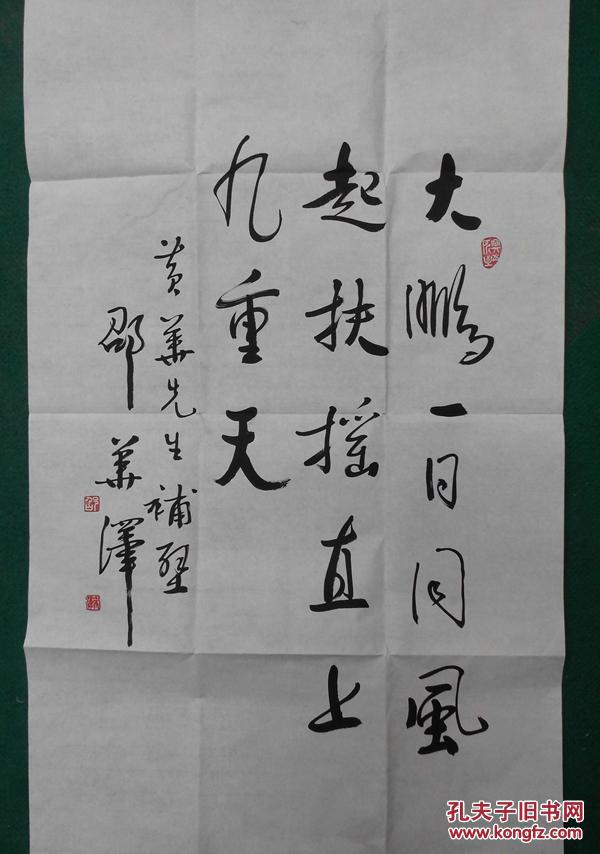 大鹏一日同風
起扶摇直上
九重天
黄華先生補壁
邵華澤
孔夫子旧书网
www.kongfz.com